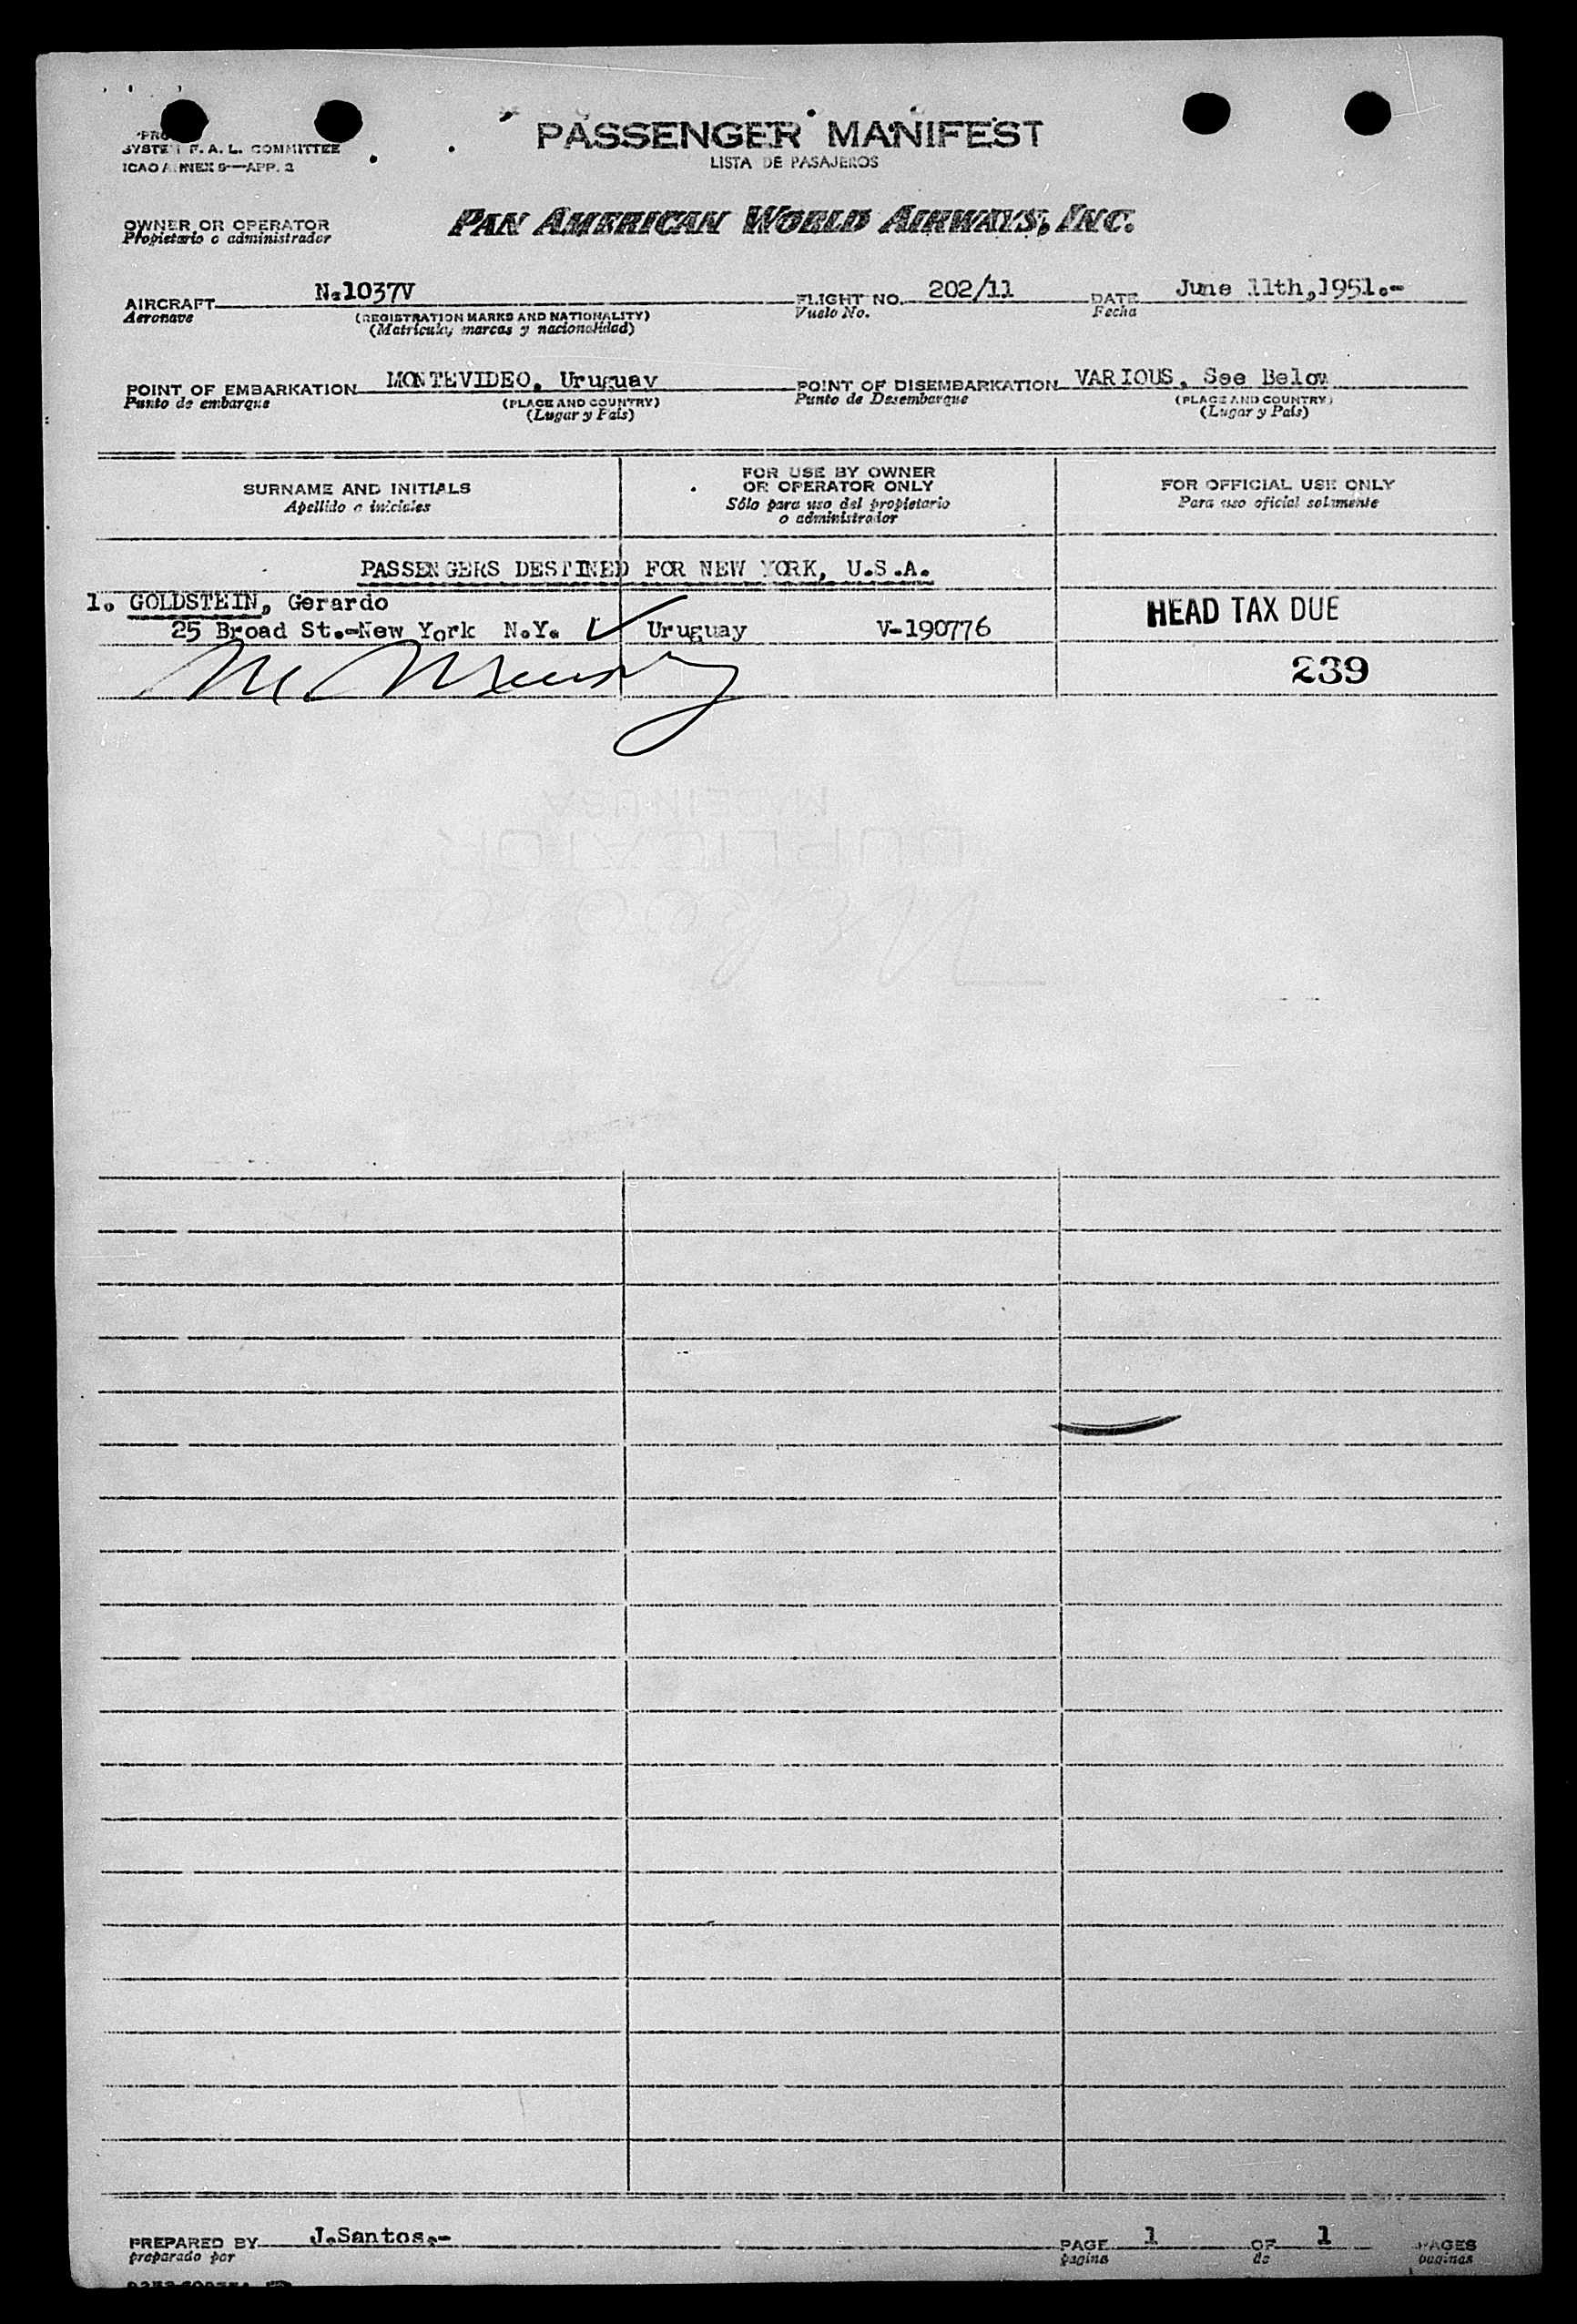 PASSENGER MANIFEST
LISTA DE PASAJEROS
SYSTEM F. A. L. COMMITTEE
ICAO ANNEX 9—APP. 2
OWNER OR OPERATOR
Propietario o administrador
PAN AMERICAN WORLD AIRWAYS, INC.
AIRCRAFT N.1037V FLIGHT NO. 202/11 DATE June 11th,1951.-
Aeronave (REGISTRATION MARKS AND NATIONALITY) Vuelo No. Fecha
(Matricula, marcas y nacionalidad)
POINT OF EMBARKATION MONTEVIDEO, Uruguay POINT OF DISEMBARKATION VARIOUS, See Below
Punto de embarque (PLACE AND COUNTRY) Punto de Desembarque (PLACE AND COUNTRY)
(Lugar y País) (Lugar y País)
SURNAME AND INITIALS
Apellido o iniciales
FOR USE BY OWNER
OR OPERATOR ONLY
Sólo para uso del propietario
o administrador
FOR OFFICIAL USE ONLY
Para uso oficial solamente
PASSENGERS DESTINED FOR NEW YORK, U.S.A.
1. GOLDSTEIN, Gerardo
25 Broad St.-New York N.Y. ✓ Uruguay V-190776
HEAD TAX DUE
239
MADE IN USA
DUPLICATOR
PREPARED BY J.Santos.- PAGE 1 OF 1 PAGES
preparado por pagina de paginas